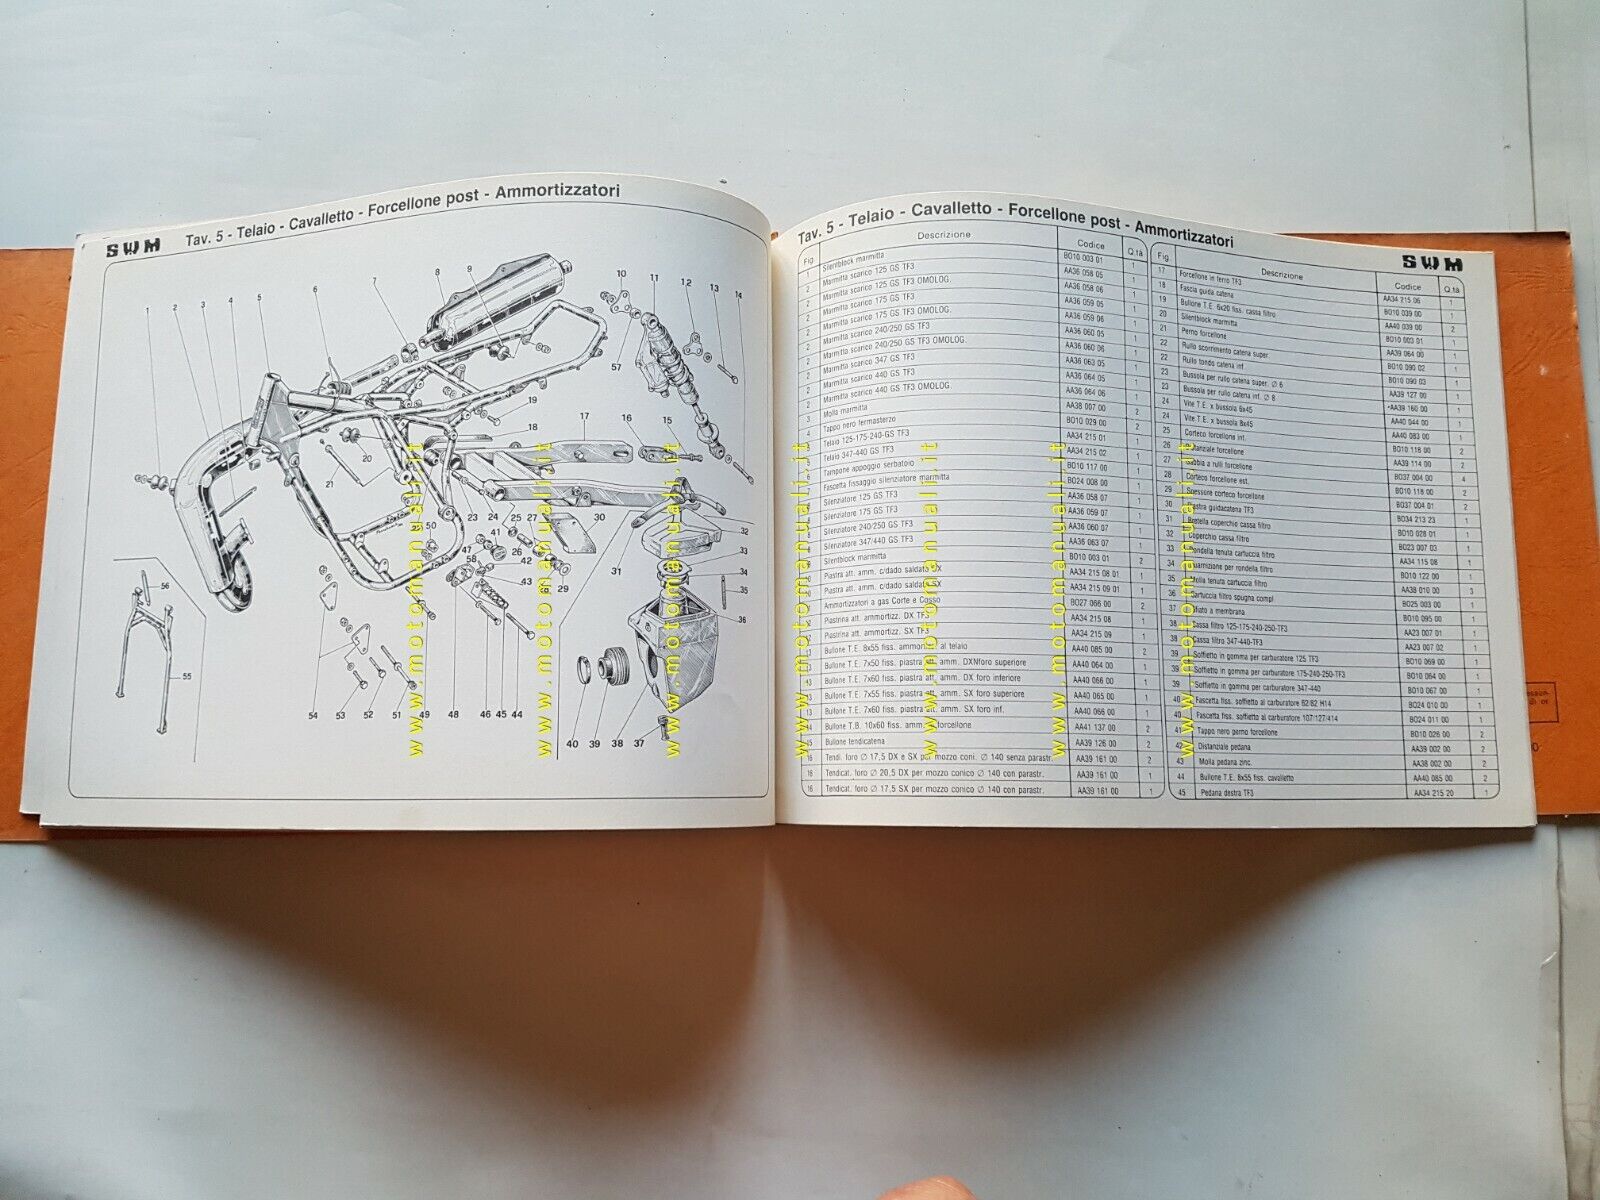 SWM
Tav. 5 - Telaio - Cavalletto - Forcellone post - Ammortizzatori
1 2 3 4 5 6 7 8 9 10 11 12 13 14
57
19
18 17 16 15
20
21
22 50 23 24 25 27 30 32
41
33
47 26
58 42 34
31
43 29 35
36
56
55
54 53 52 51 49 48 46 45 44
40 39 38 37
www.motomanuali.it
www.motomanuali.it
www.motomanuali.it
Tav. 5 - Telaio - Cavalletto - Forcellone post - Ammortizzatori
SWM
Fig. Descrizione Codice Q.tà
1 Silentblock marmitta BO10 003 01 1
2 Marmitta scarico 125 GS TF3 AA36 058 05 1
2 Marmitta scarico 125 GS TF3 OMOLOG. AA36 058 06 1
2 Marmitta scarico 175 GS TF3 AA36 059 05 1
2 Marmitta scarico 175 GS TF3 OMOLOG. AA36 059 06 1
2 Marmitta scarico 240/250 GS TF3 AA36 060 05 1
2 Marmitta scarico 240/250 GS TF3 OMOLOG. AA36 060 06 1
2 Marmitta scarico 347 GS TF3 AA36 063 05 1
2 Marmitta scarico 440 GS TF3 AA36 064 05 1
2 Marmitta scarico 440 GS TF3 OMOLOG. AA36 064 06 1
3 Molla marmitta AA38 007 00 2
4 Tappo nero fermasterzo BO10 029 00 2
Telaio 125-175-240-GS TF3 AA34 215 01 1
Telaio 347-440 GS TF3 AA34 215 02 1
Tampone appoggio serbatoio BO10 117 00 1
Fascetta fissaggio silenziatore marmitta BO24 008 00 1
Silenziatore 125 GS TF3 AA36 058 07 1
Silenziatore 175 GS TF3 AA36 059 07 1
Silenziatore 240/250 GS TF3 AA36 060 07 1
Silenziatore 347/440 GS TF3 AA36 063 07 1
Silentblock marmitta BO10 003 01 2
Piastra att. amm. c/dado saldato DX AA34 215 08 01 1
Piastra att. amm. c/dado saldato SX AA34 215 09 01 1
Ammortizzatori a gas Corte e Cosso BO27 066 00 2
Piastrina att. ammortizz. DX TF3 AA34 215 08 1
Piastrina att. ammortizz. SX TF3 AA34 215 09 1
Bullone T.E. 8x55 fiss. ammortizz. al telaio AA40 085 00 2
Bullone T.E. 7x50 fiss. piastra att. amm. DX foro superiore AA40 064 00 1
13 Bullone T.E. 7x60 fiss. piastra att. amm. DX foro inferiore AA40 066 00 1
Bullone T.E. 7x55 fiss. piastra att. amm. SX foro superiore AA40 065 00 1
13 Bullone T.E. 7x60 fiss. piastra att. amm. SX foro inf. AA40 066 00 1
Bullone T.B. 10x60 fiss. amm. forcellone AA41 137 00 2
15 Bullone tendicatena AA39 126 00 2
16 Tendi. foro ∅ 17,5 DX e SX per mozzo coni. ∅ 140 senza parastr. AA39 161 00 2
16 Tendicat. foro ∅ 20,5 DX per mozzo conico ∅ 140 con parastr. AA39 161 00 1
16 Tendicat. foro ∅ 17,5 SX per mozzo conico ∅ 140 con parastr. AA39 161 00 1
Fig. Descrizione Codice Q.tà
17 Forcellone in ferro TF3 AA34 215 06 1
18 Fascia guida catena BO10 039 00 1
19 Bullone T.E. 6x20 fiss. cassa filtro AA40 039 00 2
20 Silentblock marmitta BO10 003 01 1
21 Perno forcellone AA39 064 00 1
22 Rullo scorrimento catena super. BO10 090 02 1
22 Rullo tondo catena inf. BO10 090 03 1
23 Bussola per rullo catena super. ∅ 6 AA39 127 00 1
23 Bussola per rullo catena inf. ∅ 8 AA39 160 00 1
24 Vite T.E. x bussola 6x45 AA40 044 00 1
24 Vite T.E. x bussola 8x45 AA40 083 00 1
25 Corteco forcellone inf. BO10 118 00 2
26 Distanziale forcellone AA39 114 00 2
27 Gabbia a rulli forcellone BO37 004 00 4
28 Corteco forcellone est. BO10 118 00 2
29 Spessore corteco forcellone BO37 004 01 2
30 Piastra guidacatena TF3 BO34 213 23 1
31 Bretella coperchio cassa filtro BO10 028 01 1
32 Coperchio cassa filtro BO23 007 03 1
33 Rondella tenuta cartuccia filtro AA34 115 08 1
34 Guarnizione per rondella filtro BO10 122 00 1
35 Molla tenuta cartuccia filtro AA38 010 00 3
36 Cartuccia filtro spugna compl. BO25 003 00 1
37 Sfiato a membrana BO10 095 00 1
38 Cassa filtro 125-175-240-250-TF3 AA23 007 01 1
38 Cassa filtro 347-440-TF3 AA23 007 02 1
39 Soffietto in gomma per carburatore 125 TF3 BO10 069 00 1
39 Soffietto in gomma per carburatore 175-240-250-TF3 BO10 064 00 1
39 Soffietto in gomma per carburatore 347-440 BO10 067 00 1
40 Fascetta fiss. soffietto al carburatore 62/82 H14 BO24 010 00 1
40 Fascetta fiss. soffietto al carburatore 107/127/414 BO24 011 00 1
41 Tappo nero perno forcellone BO10 026 00 2
42 Distanziale pedana AA39 002 00 2
43 Molla pedana zinc. AA38 002 00 2
44 Bullone T.E. 8x55 fiss. cavalletto AA40 085 00 2
45 Pedana destra TF3 AA34 215 20 1
www.motomanuali.it
www.motomanuali.it
www.motomanuali.it
www.motomanuali.it